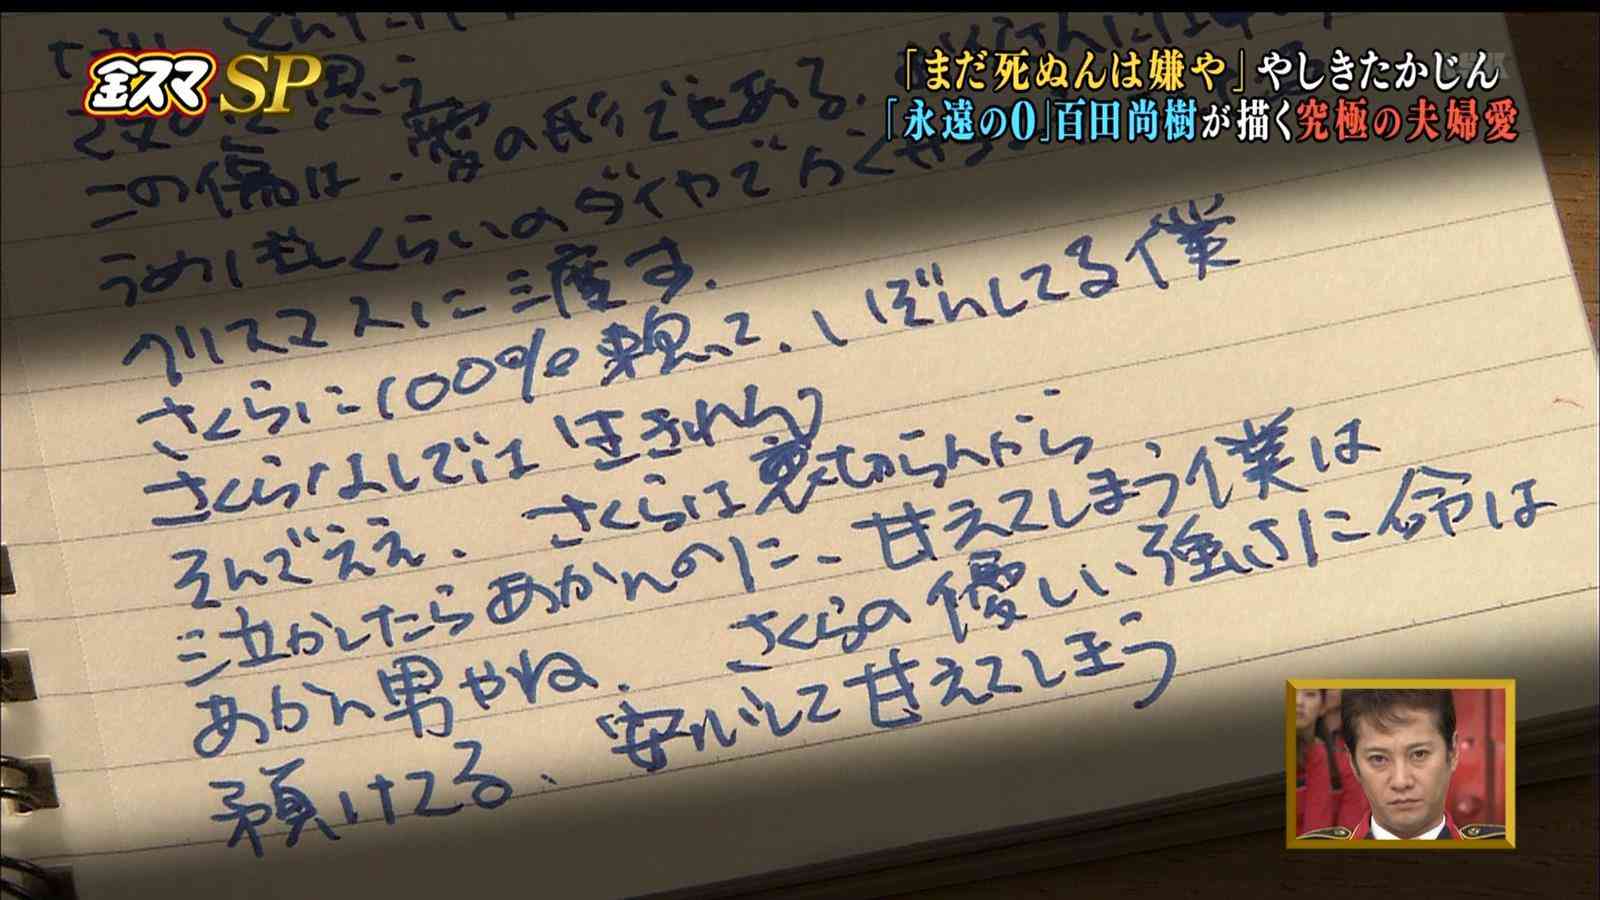 金スマSP
「まだ死ぬんは嫌や」やしきたかじん
「永遠の0」百田尚樹が描く究極の夫婦愛
思う
この傷は、愛の形でもある。
うめぼしくらいのダイヤでかくや
クリスマスに三度す。
さくらに100%頼って、しぼんしてる僕
さくらなしでは生きれん
そんでええ、さくらは裏切らんから
泣かしたらあかんのに、甘えてしまう僕は
あかん男やね。さくらの優しい強さに命は
預けてる、安心して甘えてしまう